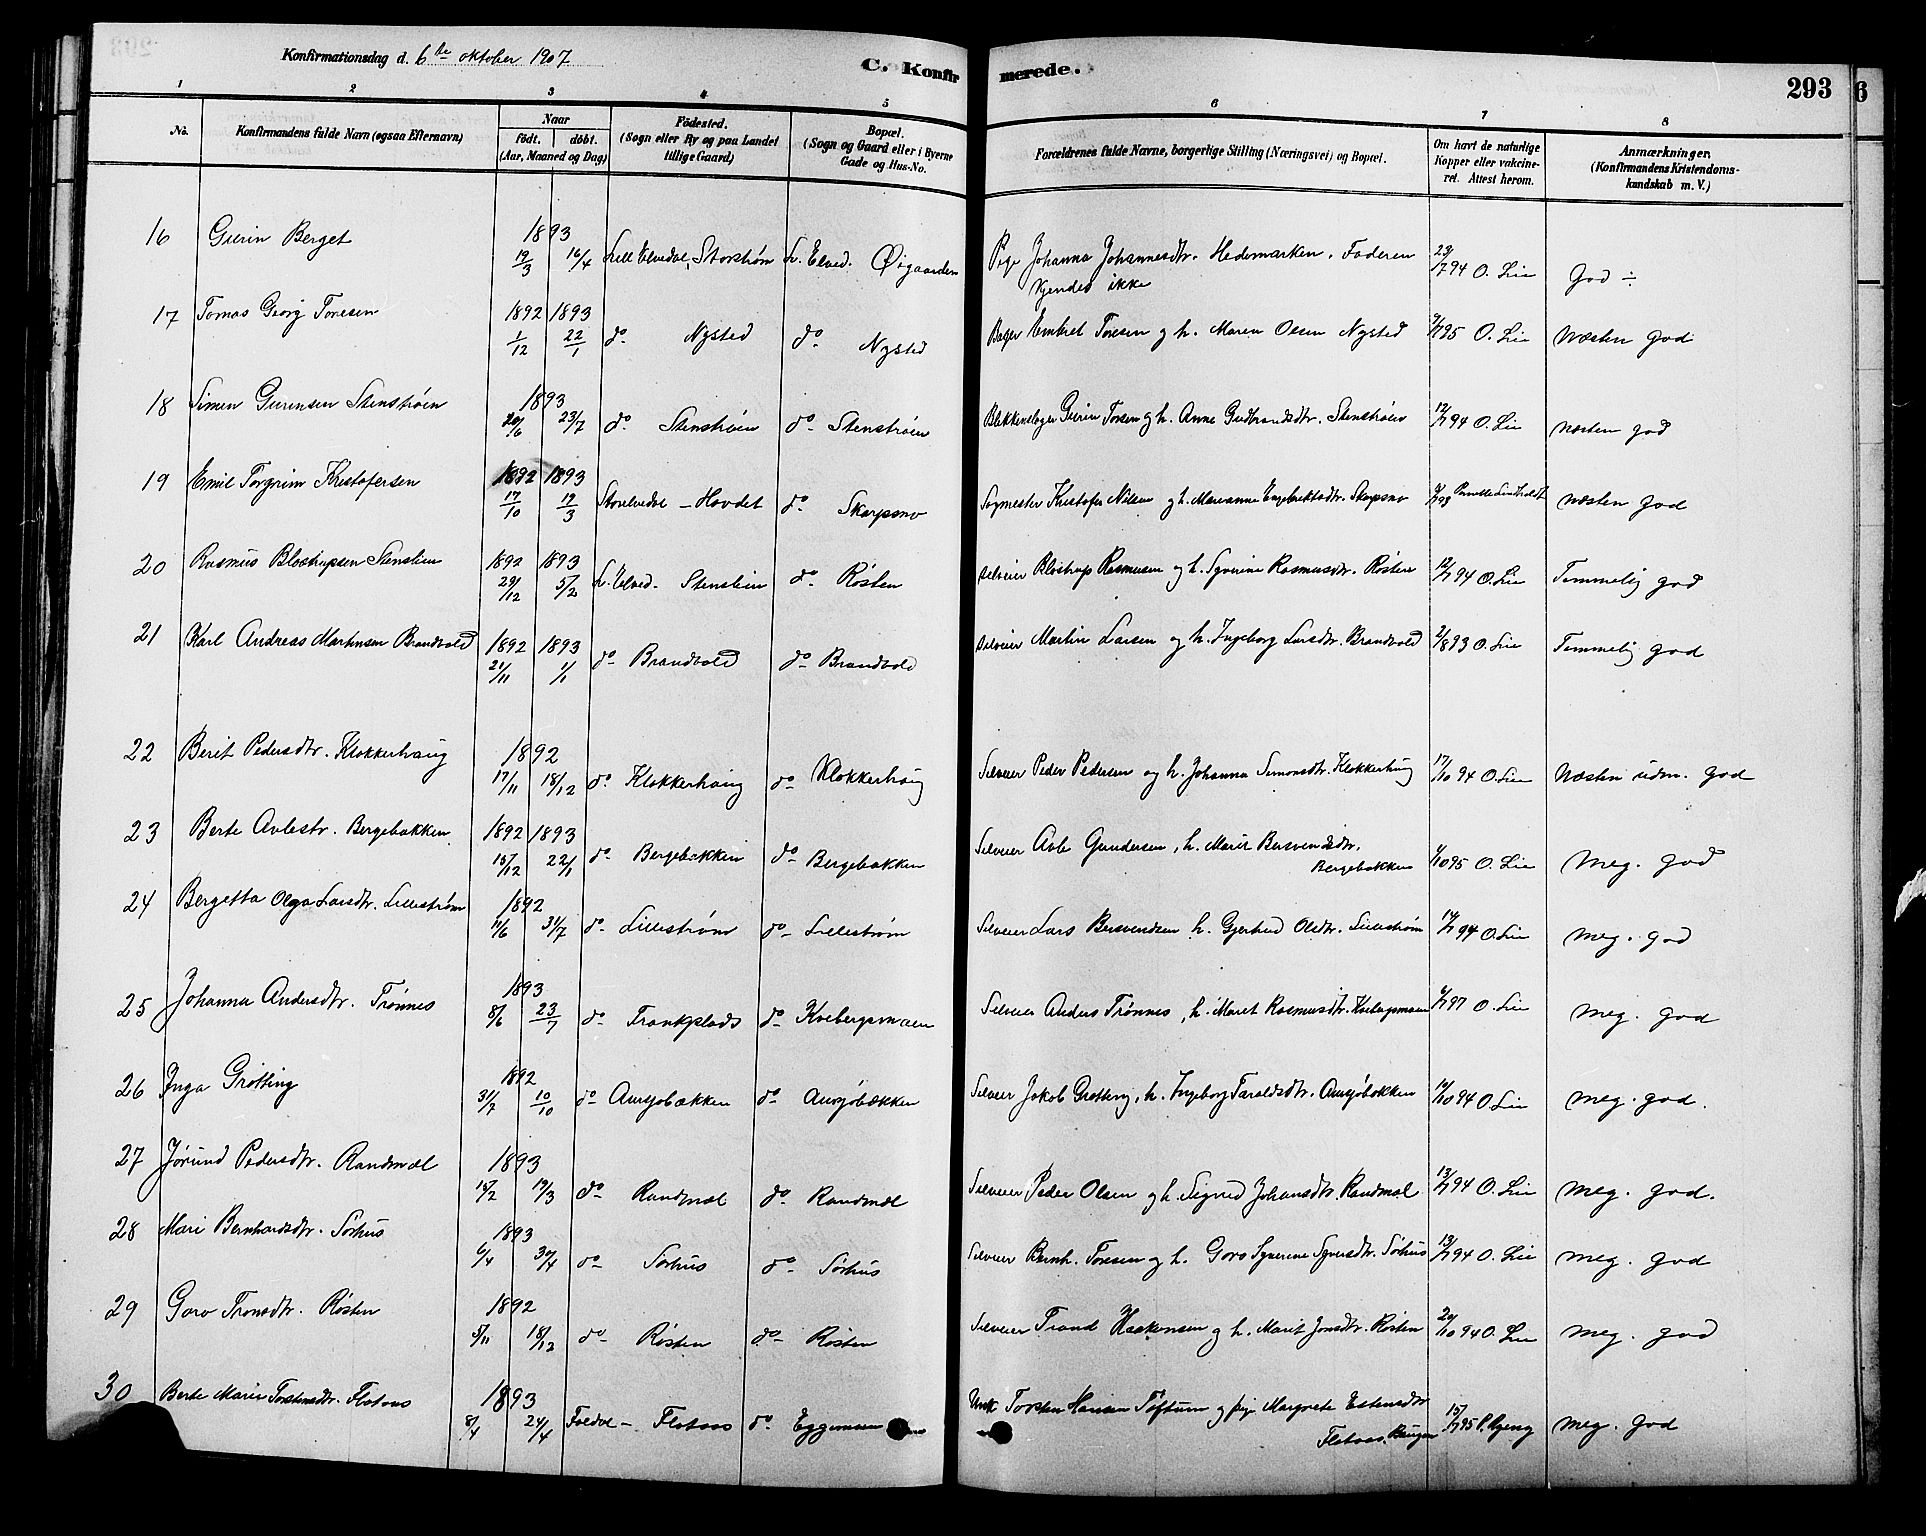 Konfirmationsdag d. 6te oktober 1907
C. Konfirmerede.
293
1 2 3 4 5 6 7 8
No. Konfirmandens fulde Navn (ogsaa Efternavn) Naar födt. döbt. (Aar, Maaned og Dag) Födested. (Sogn eller By og paa Landet tillige Gaard) Bopæl. (Sogn og Gaard eller i Byerne Gade og Hus-No. Forældrenes fulde Navne, borgerlige Stilling (Næringsvei) og Bopæl. Om havt de naturlige Kopper eller vakcineret. Attest herom. Anmærkninger. (Konfirmandens Kristendomskundskab m. V.)
16 Gurin Berget 1893 19/3 16/4 Lille Elvedal, Storstrøm L. Elved. Øigaarden Pige Johanna Johannesdtr. Hedemarken. Faderen kjendes ikke 23/794 O. Lie God ÷
17 Tomas Georg Toresen 1892 1/12 1893 22/1 do Nysted do Nysted Bager Embret Toresen og h. Maren Olsen Nysted 9/795 O. Lie Næsten god
18 Simen Gurinsen Stenstrøen 1893 20/6 23/7 do Stenstrøen do Stenstrøen Blikkenslager Gurin Toresen og h. Anne Gudbrandsdtr. Stenstrøen 12/794 O. Lie næsten god
19 Emil Torgrim Kristofersen 1892 17/10 1893 19/3 Storelvedal - Hovdet do Skarpsno Sagmester Kristofer Nilsen og h. Marianne Engebrektsdtr. Skapsno næsten god
20 Rasmus Blostrupsen Stenslien 1892 29/12 1893 5/2 L. Elved. Stenslien do Røsten selveier Blostrup Rasmusen og h. Syverine Rasmusdtr. Røsten 12/794 O. Lie Temmelig god
21 Karl Andreas Martinsen Brandvold 1892 21/11 1893 1/1 do Brandvold do Brandvold selveier Martin Larsen og h. Ingeborg Larsdtr. Brandvold 2/893 O. Lie Temmelig god
22 Berit Pedersdtr. Klokkerhaug 1892 17/11 18/12 do Klokkerhaug do Klokkerhaug Selveier Peder Pedersen og h. Johanna Simonsdtr. Klokkerhaug 17/10 94 O. Lie Næsten udm. god
23 Berte Avlestr. Bergebakken 1892 15/12 1893 22/1 do Bergebakken do Bergebakken Selveier Avle Gundersen, h. Marit Bersvendsdtr. Bergebakken 1/1095 O. Lie Meg. god
24 Bergetta Olga Larsdtr. Lillestrøm 1892 11/6 31/7 do Lillestrøm do Lillestrøm Selveier Lars Bersvendsen h. Gjertrud Olsdtr. Lillestrøm 14/794 O. Lie Meg. god
25 Johanna Andersdtr. Trønnes 1893 8/6 23/7 do Tronkplads do Kvebergsmoen Selveier Anders Trønnes, h. Maret Rasmusdtr. Kvebergsmoen 6/797 O. Lie Meg. god
26 Inga Grøtting 1892 31/7 10/10 do Aursjobækken do Aursjøbækken Selveier Jakob Grøtting, h. Ingeborg Taraldsdtr. Aursjøbækken 10/1094 O. Lie Meg. god.
27 Jørund Pedersdtr. Randmæl 1893 15/2 19/3 do Randmæl do Randmæl Selveier Peder Olsen og h. Sigrid Johansdtr. Randmæl 13/794 O. Lie Meg. god.
28 Mari Bernhardsdtr. Sørhus 1893 6/4 30/4 do Sørhus do Sørhus Selveier Bernh. Toresen og h. Goro Syverine Syversdtr. Sørhus 13/794 O. Lie Meg. god
29 Goro Tronsdtr. Røsten 1892 5/11 18/12 do Røsten do Røsten Selveier Trond Haakonsen og h. Marit Jonsdtr. Røsten 20/10 94 O. Lie Meg. god
30 Berte Marie Torstensdtr. Flataas 1893 8/4 24/4 Foldal - Flataas do Eggemoen Unk Torsten Hansen Tøftum og pige Margrete Estensdtr Flataas. 15/795 Meg. god